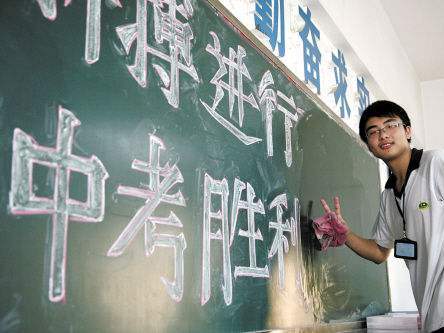 拼搏进行
中考胜利
勤奋求